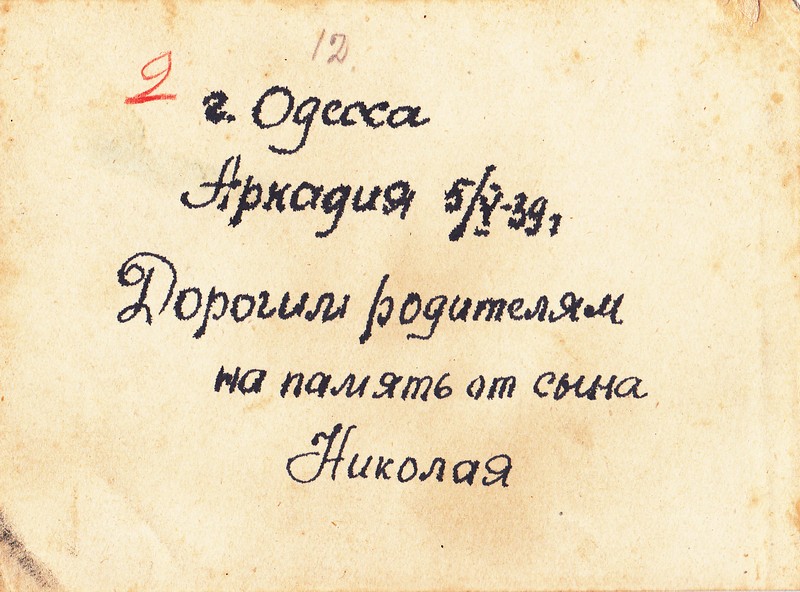 12
2
г. Одесса
Аркадия 5/V-39г
Дорогим родителям
на память от сына
Николая